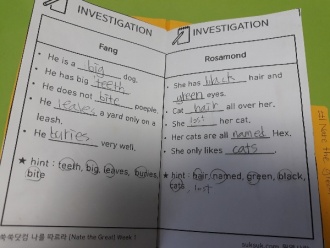 INVESTIGATION
Fang
• He is a big dog.
• He has big teeth
• He does not bite people.
• He leaves a yard only on a
leash.
• He buries very well.
★ hint : teeth, big, leaves, buries,
bite
쑥쑥닷컴 나를 따르라 (Nate the Great) Week 1
INVESTIGATION
Rosamond
• She has black hair and
green eyes.
• Cat hair all over her.
• She lost her cat.
• Her cats are all named Hex.
• She only likes cats
★ hint : hair, named, green, black,
cats, lost